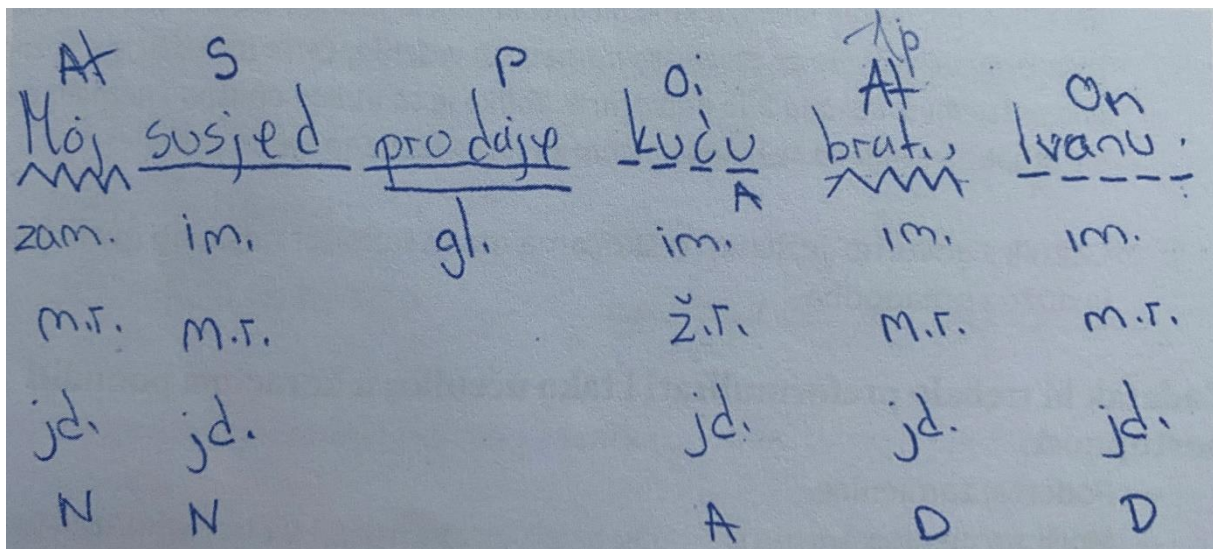 At S P Oi Ap At On
Moj susjed prodaje kuću bratu Ivanu.
A
zam. im. gl. im. im. im.
m.r. m.r. ž.r. m.r. m.r.
jd. jd. jd. jd. jd.
N N A D D